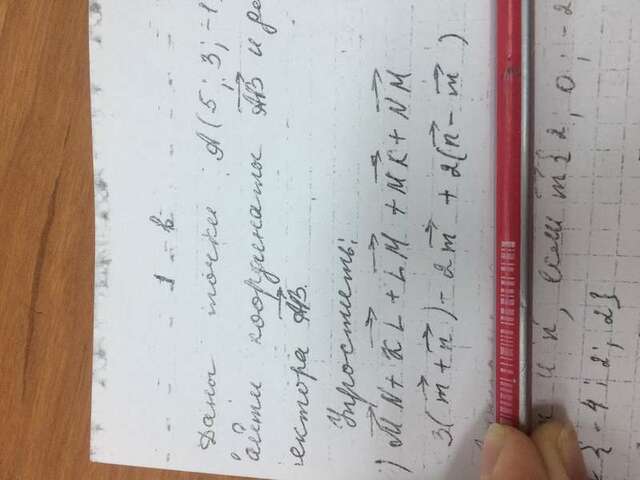 1 - в
Даны точки A(5; 3; -1
айти координаты AB и дл
ектора AB.
Упростить:
) MN + KL + LM + MK + NM
3(m + n) - 2m + 2(n - m)
и n, если m{2; 0; -2
{-4; 2; 2}